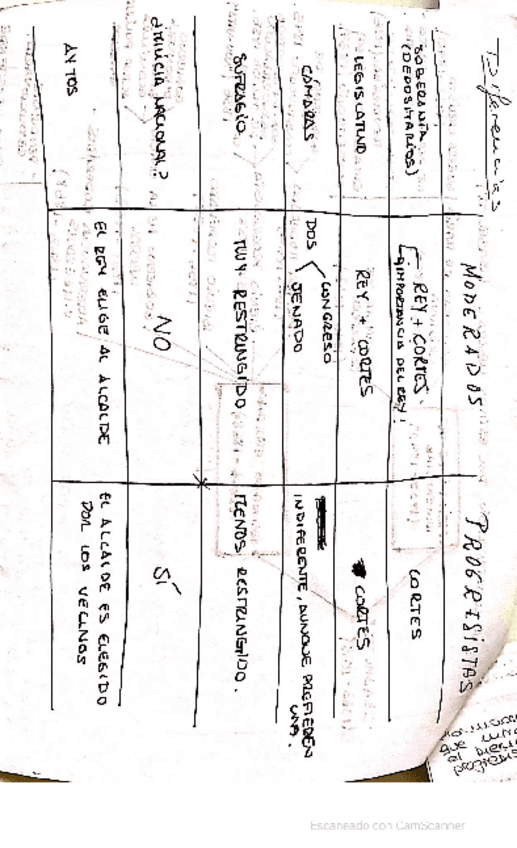 Diferencias
MODERADOS
PROGRESISTAS
SOBERANÍA
(DEPOSITARIOS)
REY + CORTES
¡IMPORTANCIA DEL REY!
CORTES
LEGISLATIVO
REY + CORTES
CORTES
CÁMARAS
DOS
CONGRESO
SENADO
INDIFERENTE, AUNQUE PREFIEREN
UNA.
SUFRAGIO
MUY RESTRINGIDO
MENOS RESTRINGIDO.
MILICIA NACIONAL?
NO
SÍ
AYTOS
EL REY ELIGE AL ALCALDE
EL ALCALDE ES ELEGIDO
POR LOS VECINOS
Escaneado con CamScanner